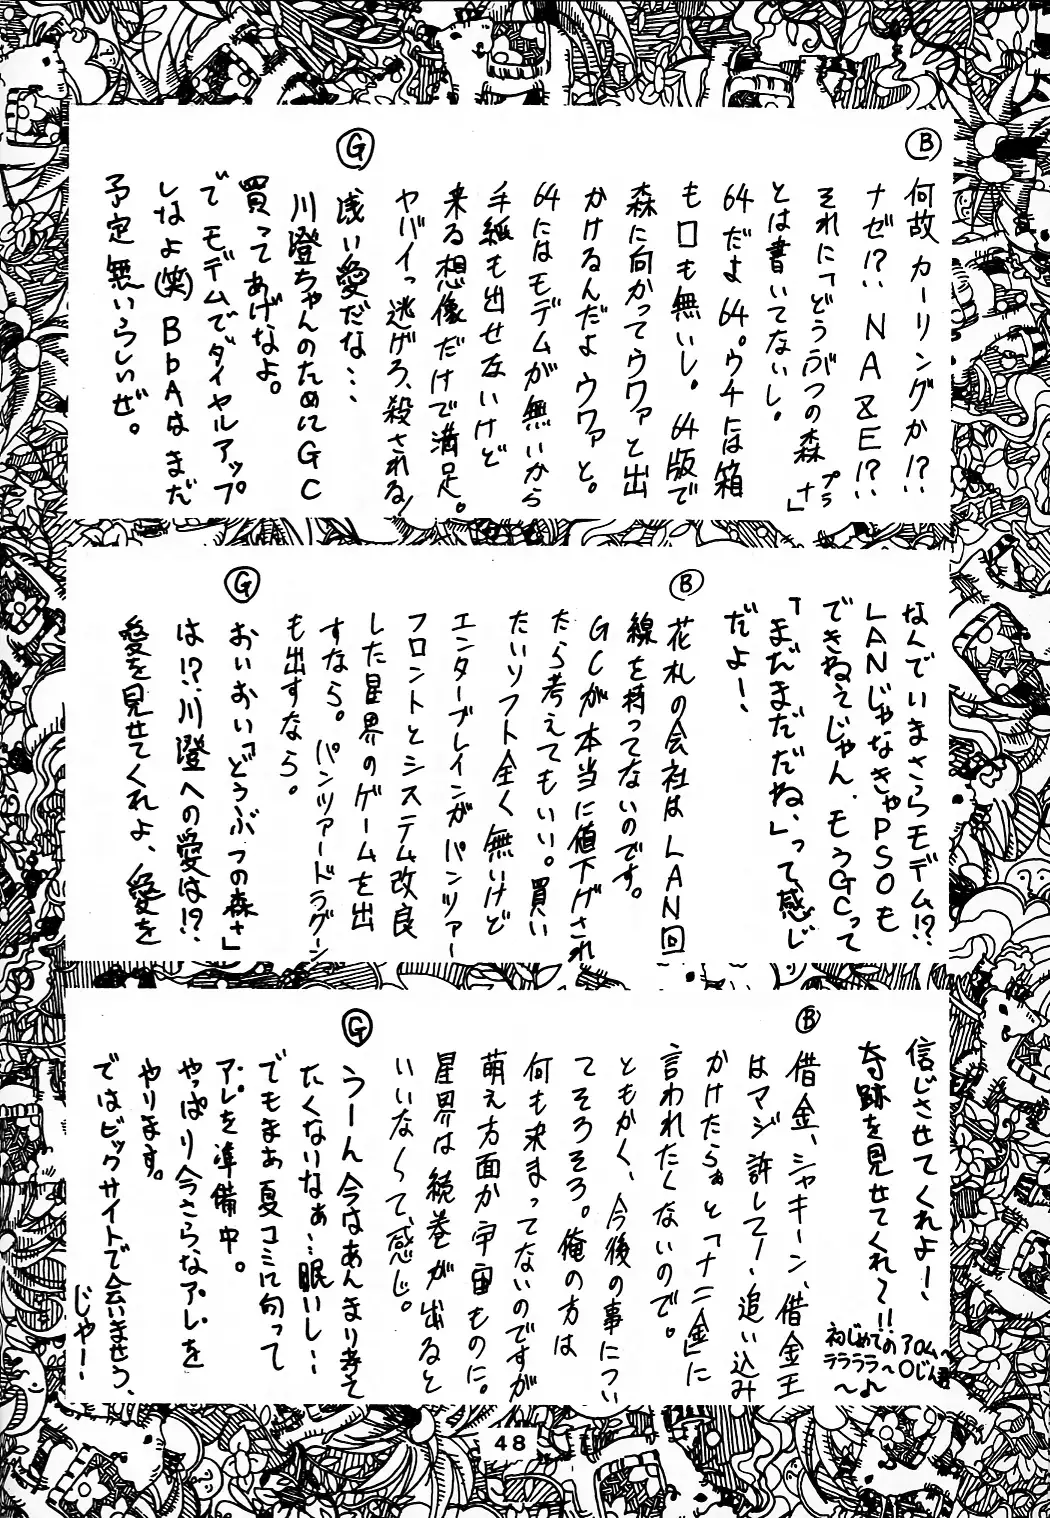 Ⓑ
何故カーリングか!?
ナゼ!? NAZE!?
それに「どうぶつの森プラナ」
とは書いてないし。
64だよ64。ウチには箱
も口も無いし。64版で
森に向かってウワァと出
かけるんだよウワァと。
64にはモデムが無いから
手紙も出せないけど
来る想像だけで満足。
ヤバイっ逃げろ、殺される!
Ⓖ
浅い愛だな…
川澄ちゃんのためにGC
買ってあげなよ。
でモデムでダイヤルアップ
しなよ(笑)BbAはまだ
予定無いらしいぜ。
なんでいまさらモデム!?
LANじゃなきゃPSOも
できねえじゃん。もうGCって
「まだまだだね、」って感じ
だよー
Ⓑ
花札の会社はLAN回
線を持ってないのです。
GCが本当に値下げされ
たら考えてもいい。買い
たいソフト全く無いけど
エンターブレインがパンツァー
フロントとシステム改良
した星界のゲームを出
すなら。パンツァードラグーン
も出すなら。
Ⓖ
おいおい「どうぶつの森+」
は!?川澄への愛は!?
愛を見せてくれよ、愛を
信じさせてくれよー
奇跡を見せてくれ〜!!
初じめてのアロム〜
ララララ〜♪〇じん君
〜
Ⓑ
借金、シャキーン、借金王
はマジ許してー追い込み
かけたらぁと「ナニ金」に
言われたくないので。
ともかく、今後の事につい
てそろそろ。俺の方は
何も決まってないのですが
萌え方面か宇宙ものに。
星界は続巻が出ると
いいな〜て感じ。
Ⓖ
うーん今はあんまり考え
たくないなぁ…眠いし…
でもまあ夏コミに向って
アレを準備中。
やっぱり今さらなアレを
やります。
ではビックサイトで会いませう、
じゃー
48